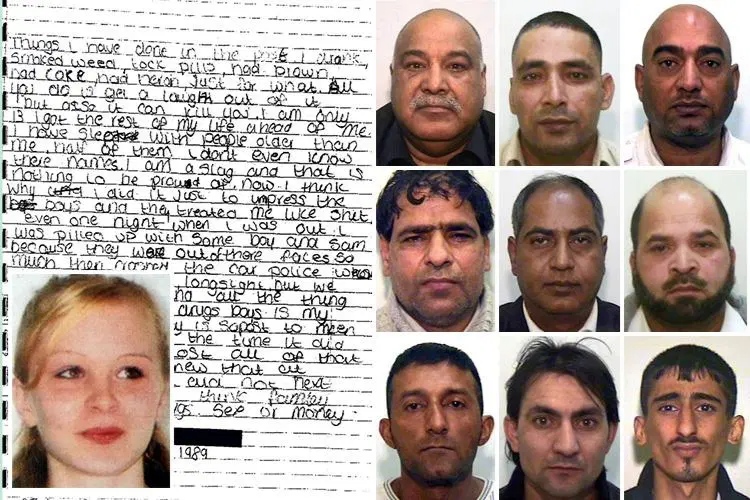 Things I have done in the past I drank,
smoked weed tock pills had blown
had coke had heron Just for what all
you do is get a laugh out of it
but also it can kill you. I am only
13 I got the rest of my life ahead of me
I have with people older than
me half of them I dont even know
there names. I am a slag and that is
nothing to be proud of, now I think
why I did it just to impress the
boys and they treated me like shit,
even one night when I was out I
was pilled up with some boy and Sam
because they were out of there faces so
much then the car police
longsight but we
out the thing
drugs boys is my
y is sopost to meen
the time it did
ost all of that
new that at
cud not next
think family
Sex or money.
1989